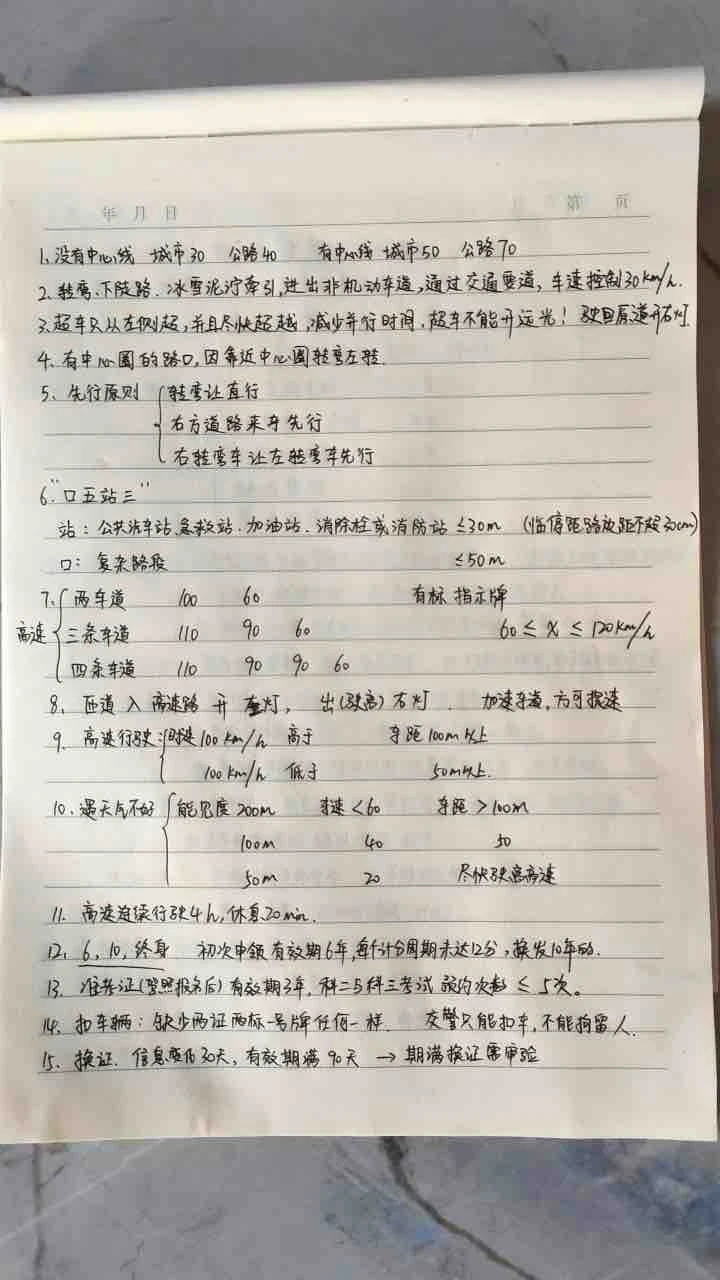 年 月 日 第 页
1、没有中心线 城市30 公路40 有中心线 城市50 公路70
2、转弯、下陡路、冰雪泥泞牵引,进出非机动车道,通过交通要道,车速控制30km/h.
3、超车只从左侧超,并且尽快超越,减少并行时间,超车不能开远光! 驶回原道开右灯.
4、有中心圈的路口,因靠近中心圈转弯左转.
5、先行原则 { 转弯让直行
右方道路来车先行
右转弯车让左转弯车先行
6、“口五站三”
站:公共汽车站、急救站、加油站、消除栓或消防站 ≤30m (临停距路边距不超30cm)
口:复杂路段 ≤50m
7、{ 两车道 100 60 有标 指示牌
高速 三条车道 110 90 60 60 ≤ x ≤ 120km/h
四条车道 110 90 90 60
8、匝道入高速路 开左灯, 出(驶离)右灯. 加速车道,方可提速
9、高速行驶:{ 时速100km/h 高于 车距100m以上
100km/h 低于 50m以上.
10、遇天气不好 { 能见度 200m 车速<60 车距>100m
100m 40 50
50m 20 尽快驶离高速
11. 高速连续行驶4h,休息20min.
12, 6, 10, 终身 初次申领有效期6年,每个计分周期未达12分,换发10年的.
13、准考证(驾照报名后)有效期3年,科二与科三考试 预约次数 ≤ 5次。
14、扣车辆:缺少两证两标一号牌任何一样. 交警只能扣车,不能拘留人.
15、换证. 信息变化30天,有效期满90天 → 期满换证需审验